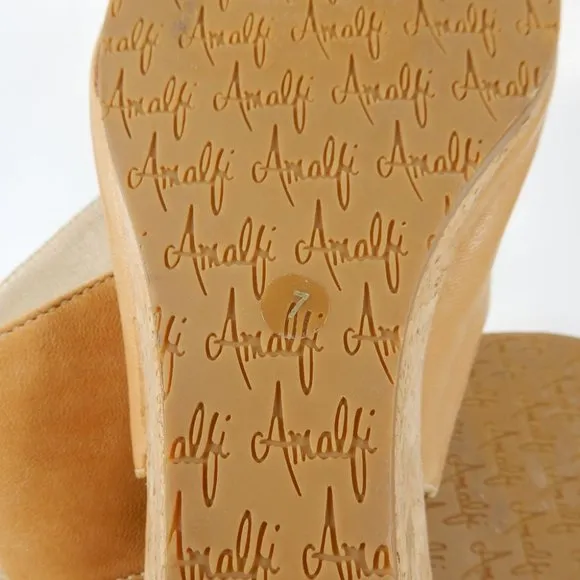 Amalfi Amalfi Amalfi
Amalfi Amalfi Amalfi Amalfi
Amalfi Amalfi Amalfi
Amalfi Amalfi Amalfi
7
fi Amalfi
alfi Amalfi
Amalfi Ama